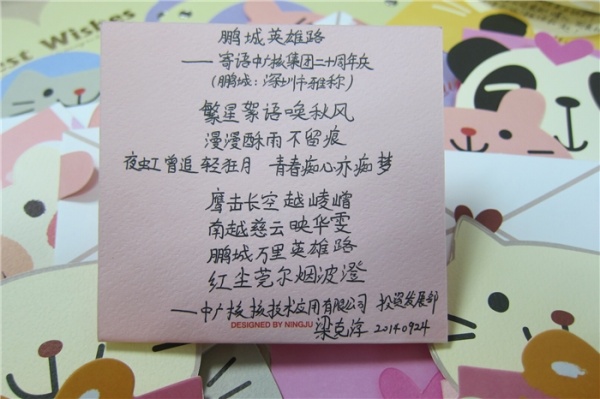 est Wishes
鹏城英雄路
——寄语中广核集团二十周年庆
(鹏城：深圳市雅称)
繁星絮语唤秋风
漫漫酥雨不留痕
夜虹曾追轻狂月 青春痴心亦痴梦
鹰击长空越崚嶒
南越慈云映华雯
鹏城万里英雄路
红尘莞尔烟波澄
——中广核核技术应用有限公司 投资发展部
DESIGNED BY NINGJU
梁克淳 20140924